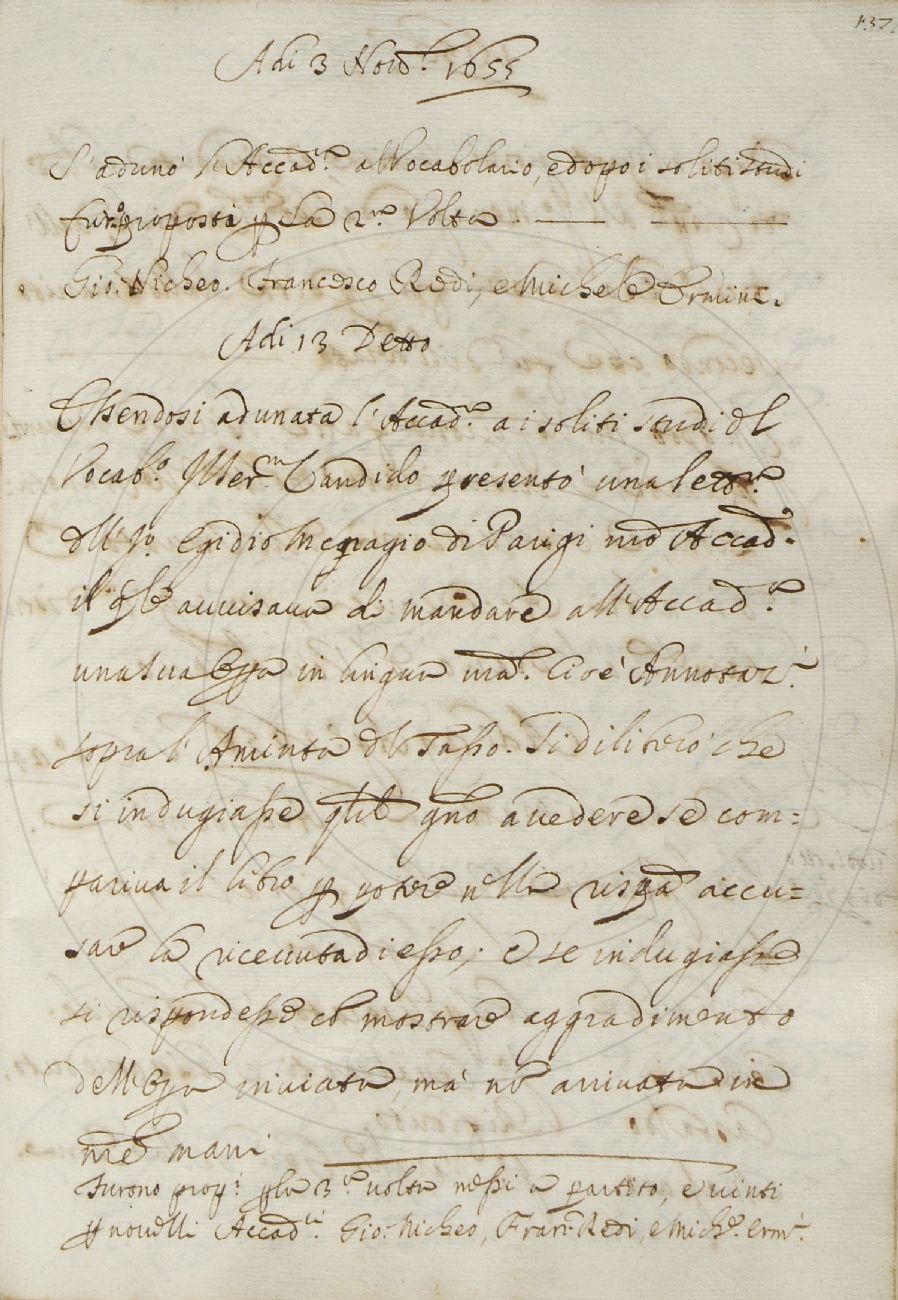 137.
Adi 3 Nov.e 1655
S'adunò l'Accad.a al Vocabolario, e dopo i soliti studi
fur.o proposti p la 2.da Volta
Gio. Nicheo. Francesco Redi, e Michele Ermini.
Adi 13 Detto
Essendosi adunata l'Accad.a a i soliti studi del
Vocab.o Candido presentò una lett.a
dell' Egidio Menagio di Parigi nro Accad.o
il qle avvisava di mandare all'Accad.a
una sua opa in lingua nra. Cioè Annotaz.i
sopra l'Aminta del Tasso. Si diliberò che
si indugiasse qlche gno a vedere se com=
pariva il libro p potere nella rispta accu=
sare la ricevuta di esso; e se indugiasse
si rispondesse co mostrare aggradimento
dell'opa inviata, mà nō arrivata in
nre mani
Furono prop.i p la 3.a volta messi a partito, e vinti
p novelli Accad.ci Gio. Nicheo, Fran. Redi, e Mich.e Erm.i